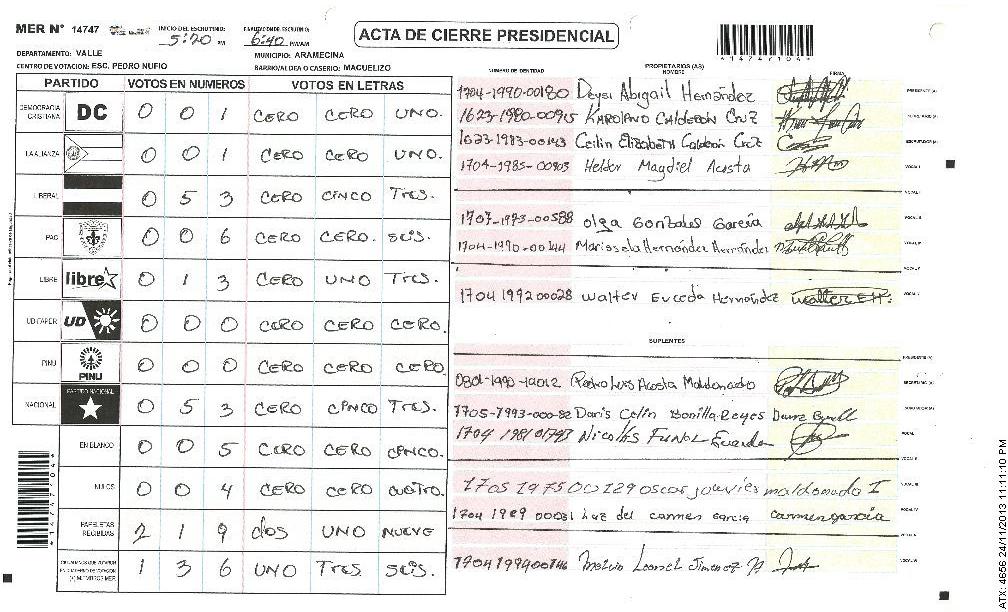 MER N° 14747
INICIO DEL ESCRUTINIO: 5:20 PM
FINALIZACION ESCRUTINIO: 6:40 PM/AM
ACTA DE CIERRE PRESIDENCIAL
*14747104*
DEPARTAMENTO: VALLE
MUNICIPIO: ARAMECINA
CENTRO DE VOTACION: ESC. PEDRO NUFIO
BARRIO/ALDEA O CASERIO: MACUELIZO
PARTIDO VOTOS EN NUMEROS VOTOS EN LETRAS
DEMOCRACIA CRISTIANA DC 0 0 1 CERO CERO UNO.
LA ALIANZA 0 0 1 CERO CERO UNO.
LIBERAL 0 5 3 CERO CINCO Tres.
PAC 0 0 6 CERO CERO. seis.
LIBRE libre 0 1 3 CERO UNO Tres.
UD FAPER UD 0 0 0 CERO CERO CERO.
PINU PINU 0 0 0 CERO CERO CERO.
NACIONAL PARTIDO NACIONAL 0 5 3 CERO CINCO Tres.
EN BLANCO 0 0 5 CERO CERO CINCO.
NULOS 0 0 4 CERO CERO CUATRO.
PAPELETAS RECIBIDAS 2 1 9 dos UNO NUEVE
1 3 6 UNO Tres seis.
*14747104*
NUMERO DE IDENTIDAD PROPIETARIOS (AS) NOMBRE FIRMA
1704-1990-00180 Deysi Abigail Hernández PRESIDENTE (A)
1623-1980-00915 KAROLAYO CALDERON CRUZ SECRETARIO (A)
1623-1983-00143 Ceilin Elizabeth Calderón Cruz ESCRUTADOR (A)
1704-1985-00803 Helder Magdiel Acosta VOCAL I
VOCAL II
1707-1993-00588 olga Gonzales García VOCAL III
1704-1990-00144 Marissela Hernández Hernández VOCAL IV
VOCAL V
1704 1992 00028 Walter Euceda Hernández Walter E.H.
SUPLENTES
PRESIDENTE (A)
0801-1990-19012 Pedro Luis Acosta Maldonado SECRETARIO (A)
1705-1993-000-82 Daris Celin Bonilla Reyes ESCRUTADOR (A)
1704 1981 01743 Nicolas Funez Euceda VOCAL I
VOCAL II
1705 1975 00129 oscar javier maldonado I VOCAL III
1704 1989 00031 Luz del carmen garcia carmen garcia VOCAL IV
VOCAL V
1704 1994 00146 Melvin Leonel Jimenez
ATX: 4656 24/11/2013 11:11:10 PM